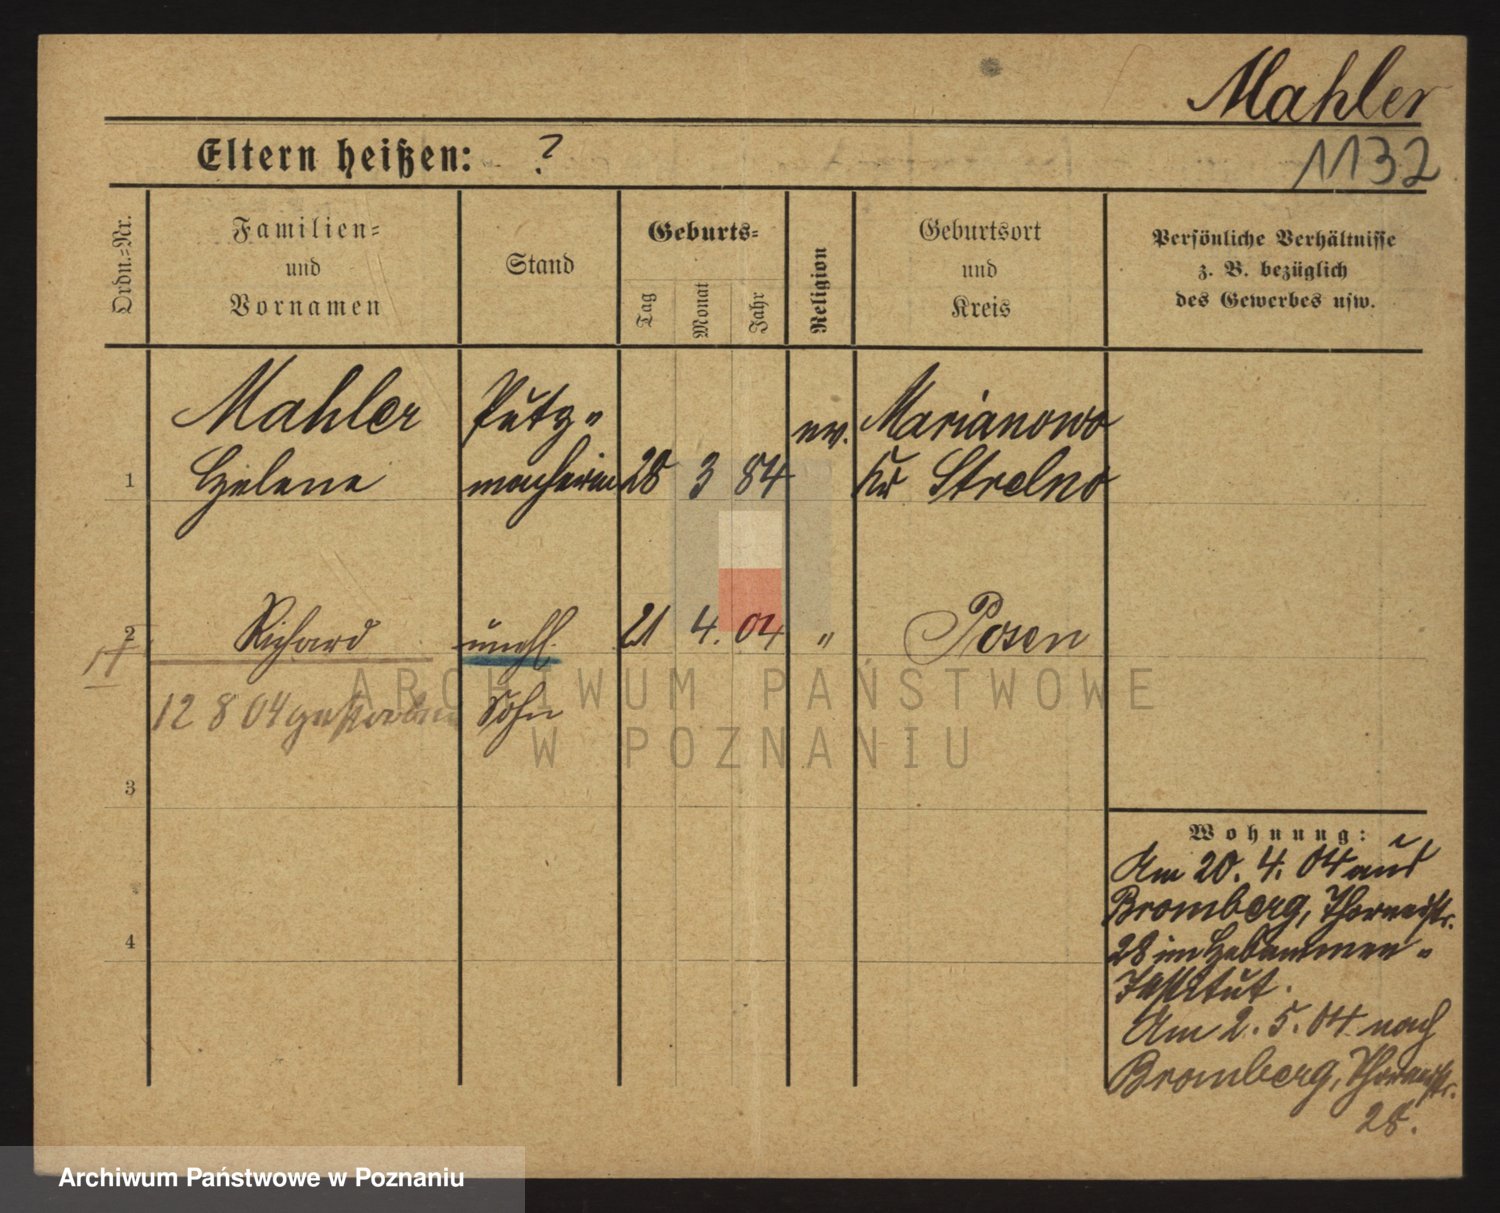 Mahler
1132
Eltern heißen: ?
Ordn.-Nr.
Familien-
und
Vornamen
Stand
Geburts-
Tag
Monat
Jahr
Religion
Geburtsort
und
Kreis
Persönliche Verhältnisse
z. B. bezüglich
des Gewerbes usw.
Mahler Putz- ev. Marianowo
1 Helene macherin 28 3 84 Kr Strelno
2 Richard unehl. 21 4. 04 " Posen
12 8 04 gestorben Sohn
ARCHIWUM PAŃSTWOWE
W POZNANIU
3
Wohnung:
Am 20. 4. 04 aus
Bromberg, Thornerstr.
28 im Hebammen-
Institut.
4
Am 2. 5. 04 nach
Bromberg, Thornerstr.
28.
Archiwum Państwowe w Poznaniu